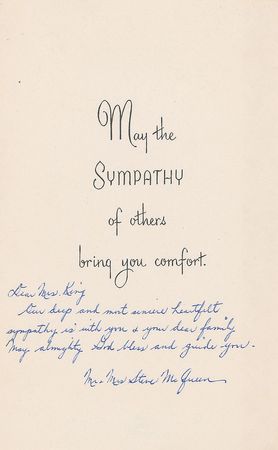 May the
SYMPATHY
of others
bring you comfort.
Dear Mrs. King
Our deep and most sincere heartfelt
sympathy is with you & your dear family
May almighty God bless and guide you.
Mr. Mrs Steve McQueen